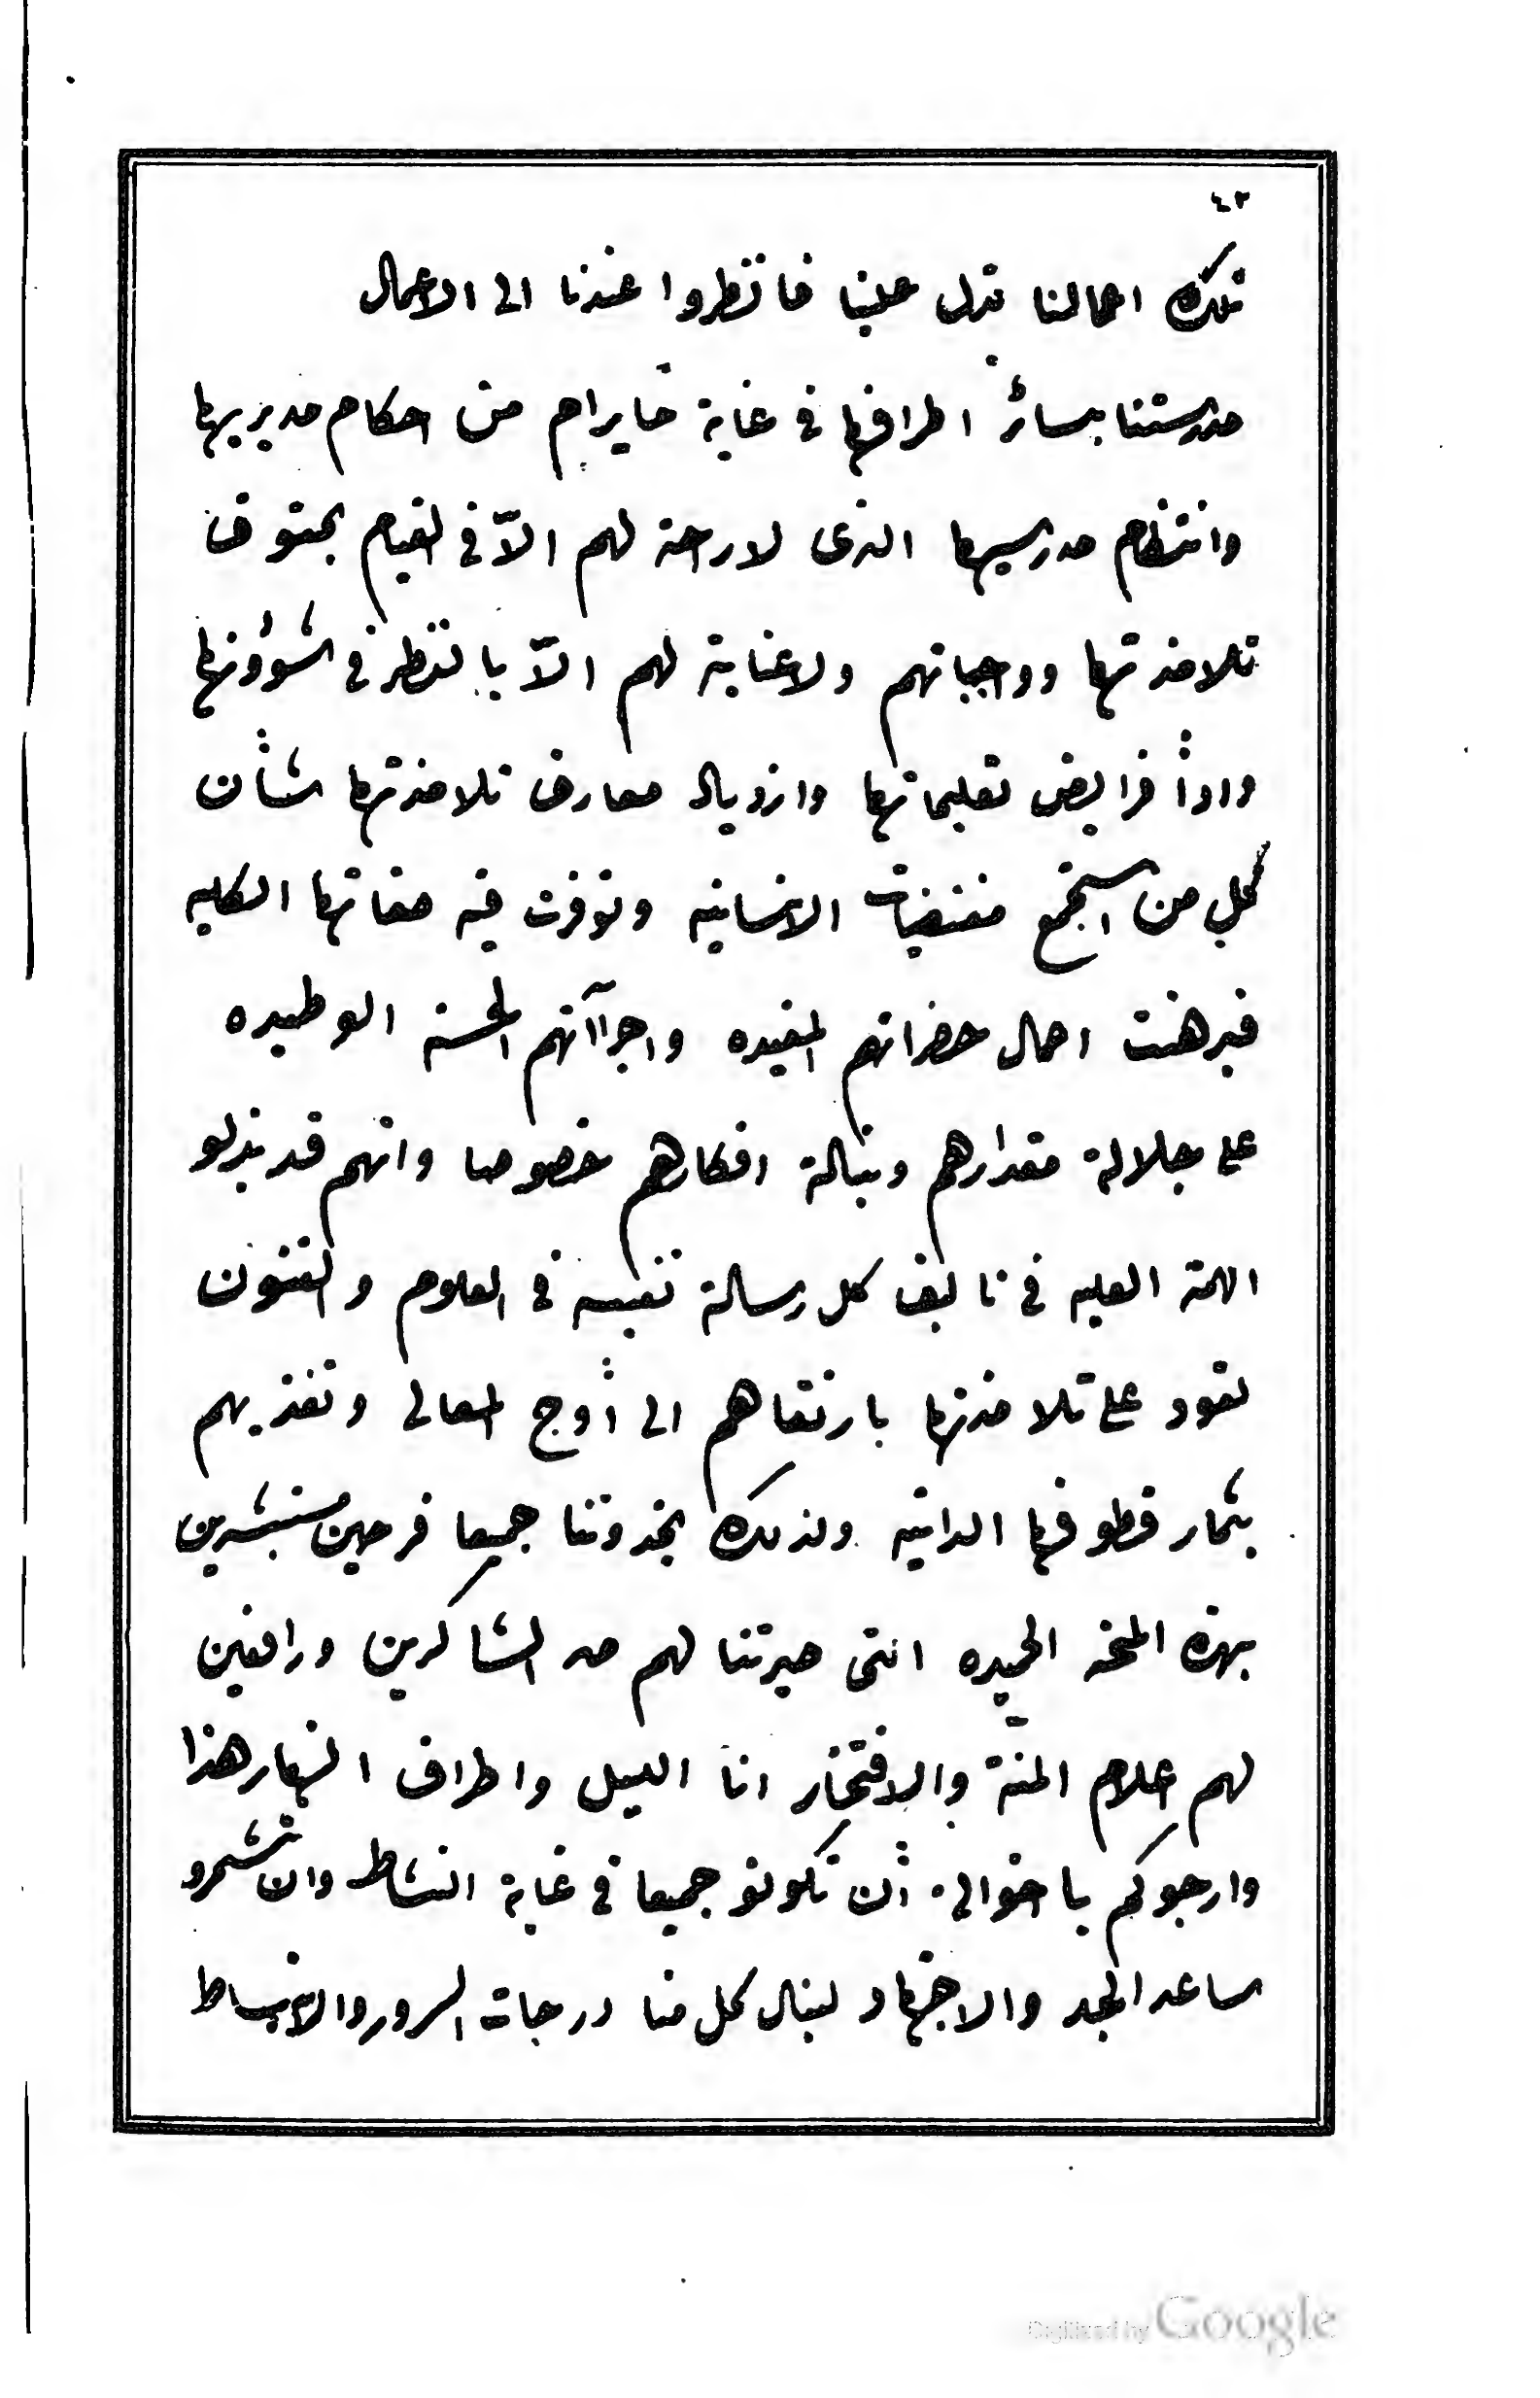 ٤٢
تلك اعمالنا تدل علينا فانظروا عندنا الى الاعمال
مدرستنا بسائر اطرافها فى غاية مايرام من احكام مديريها
وانتظام مدرسيها الذى لاراحة لهم الاّ فى القيام بحقوق
تلامذتها وواجباتهم ولاعناية لهم الاّ بالنظر فى شؤونها
واداأ فرايض تعليماتها وازدياد معارف تلامذتها شأن
كل من استجمع مقتضيات الانسانيه وتوفرت فيه صفاتها الكليه
فبرهنت اعمال حضراتهم المفيده واجراآتهم الحسنه الوطيده
على جلالة مقدارهم ونبالة افكارهم خصوصا وانهم قد بذلو
الهمة العليه فى تاليف كل رسالة نفيسه فى العلوم والفنون
تعود على تلامذتها بارتقاهم الى أوج المعالى وتغذيهم
بثمار قطوفها الدانيه ولذلك تجدوننا جميعا فرحين مستبشرين
بهذه المنحه الحميده التى صيرتنا لهم من الشاكرين ورافعين
لهم اعلام المنّة والافتخار انا الليل واطراف النهار هذا
وارجوكم يا اخوالى أن تكونو جميعا فى غاية النشاط وان تشمرو
ساعد الجد والاجتهاد لينال كل منا درجات السرور والانبساط
Digitized by Google